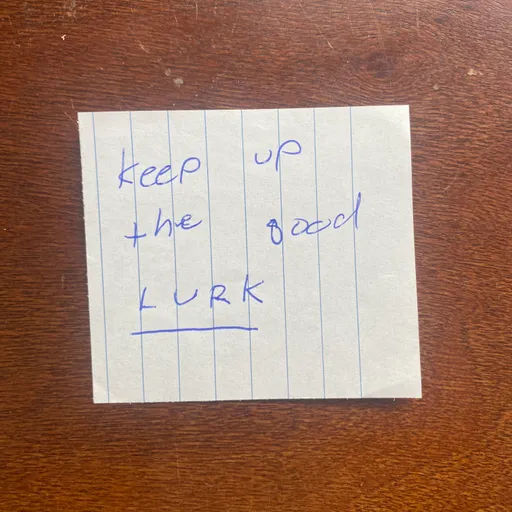 keep up
the good
LURK